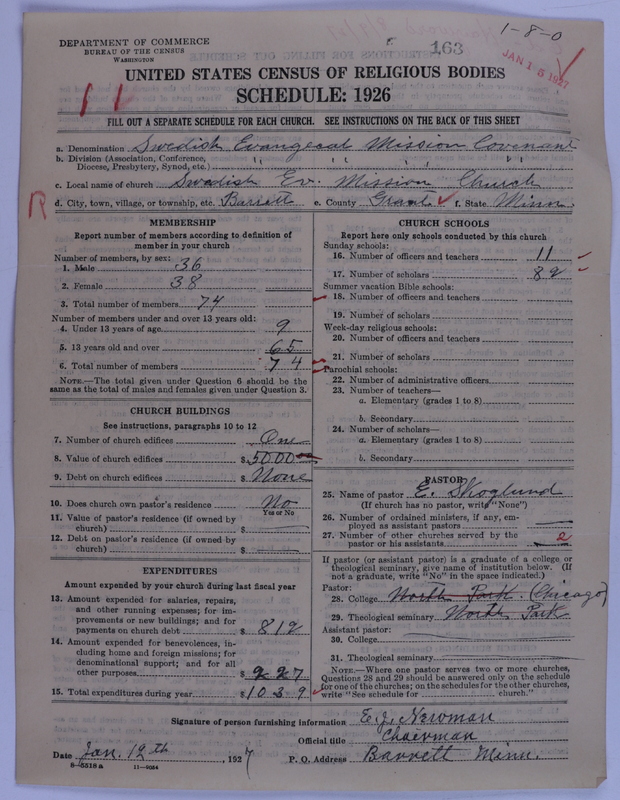 1-8-0
163
JAN 15 1927
DEPARTMENT OF COMMERCE
BUREAU OF THE CENSUS
WASHINGTON
UNITED STATES CENSUS OF RELIGIOUS BODIES
SCHEDULE: 1926
11
FILL OUT A SEPARATE SCHEDULE FOR EACH CHURCH. SEE INSTRUCTIONS ON THE BACK OF THIS SHEET
a. Denomination Swedish Evangecal Mission Covenant
b. Division (Association, Conference,
Diocese, Presbytery, Synod, etc.) " " " "
c. Local name of church Swedish Ev. Mission Church
R
d. City, town, village, or township, etc. Barrett e. County Grant f. State Minn
MEMBERSHIP
Report number of members according to definition of
member in your church
Number of members, by sex:
1. Male 36
2. Female 38
3. Total number of members 74
Number of members under and over 13 years old:
4. Under 13 years of age 9
5. 13 years old and over 65
6. Total number of members 74
NOTE.—The total given under Question 6 should be the
same as the total of males and females given under Question 3.
CHURCH BUILDINGS
See instructions, paragraphs 10 to 12
7. Number of church edifices One
8. Value of church edifices $5000
9. Debt on church edifices $None
10. Does church own pastor's residence No
Yes or No
11. Value of pastor's residence (if owned by
church) $
12. Debt on pastor's residence (if owned by
church) $
EXPENDITURES
Amount expended by your church during last fiscal year
13. Amount expended for salaries, repairs,
and other running expenses; for im-
provements or new buildings; and for
payments on church debt $812
14. Amount expended for benevolences, in-
cluding home and foreign missions; for
denominational support; and for all
other purposes $227
15. Total expenditures during year $1039
CHURCH SCHOOLS
Report here only schools conducted by this church
Sunday schools:
16. Number of officers and teachers 11
17. Number of scholars 82
Summer vacation Bible schools:
18. Number of officers and teachers
19. Number of scholars
Week-day religious schools:
20. Number of officers and teachers
21. Number of scholars
Parochial schools:
22. Number of administrative officers
23. Number of teachers—
a. Elementary (grades 1 to 8)
b. Secondary
24. Number of scholars—
a. Elementary (grades 1 to 8)
b. Secondary
PASTOR
25. Name of pastor E. Skoglund
(If church has no pastor, write "None")
26. Number of ordained ministers, if any, em-
ployed as assistant pastors
27. Number of other churches served by the
pastor or his assistants 2
If pastor (or assistant pastor) is a graduate of a college or
theological seminary, give name of institution below. (If
not a graduate, write "No" in the space indicated.)
Pastor:
28. College North Park. (Chicago)
29. Theological seminary North Park
Assistant pastor:
30. College
31. Theological seminary
NOTE.—Where one pastor serves two or more churches,
Questions 28 and 29 should be answered only on the schedule
for one of the churches; on the schedules for the other churches,
write "See schedule for church."
Signature of person furnishing information E. J. Newman
Official title Chairman
Date Jan. 12th, 1927 P. O. Address Barrett Minn.
8—5518 a 11—9034